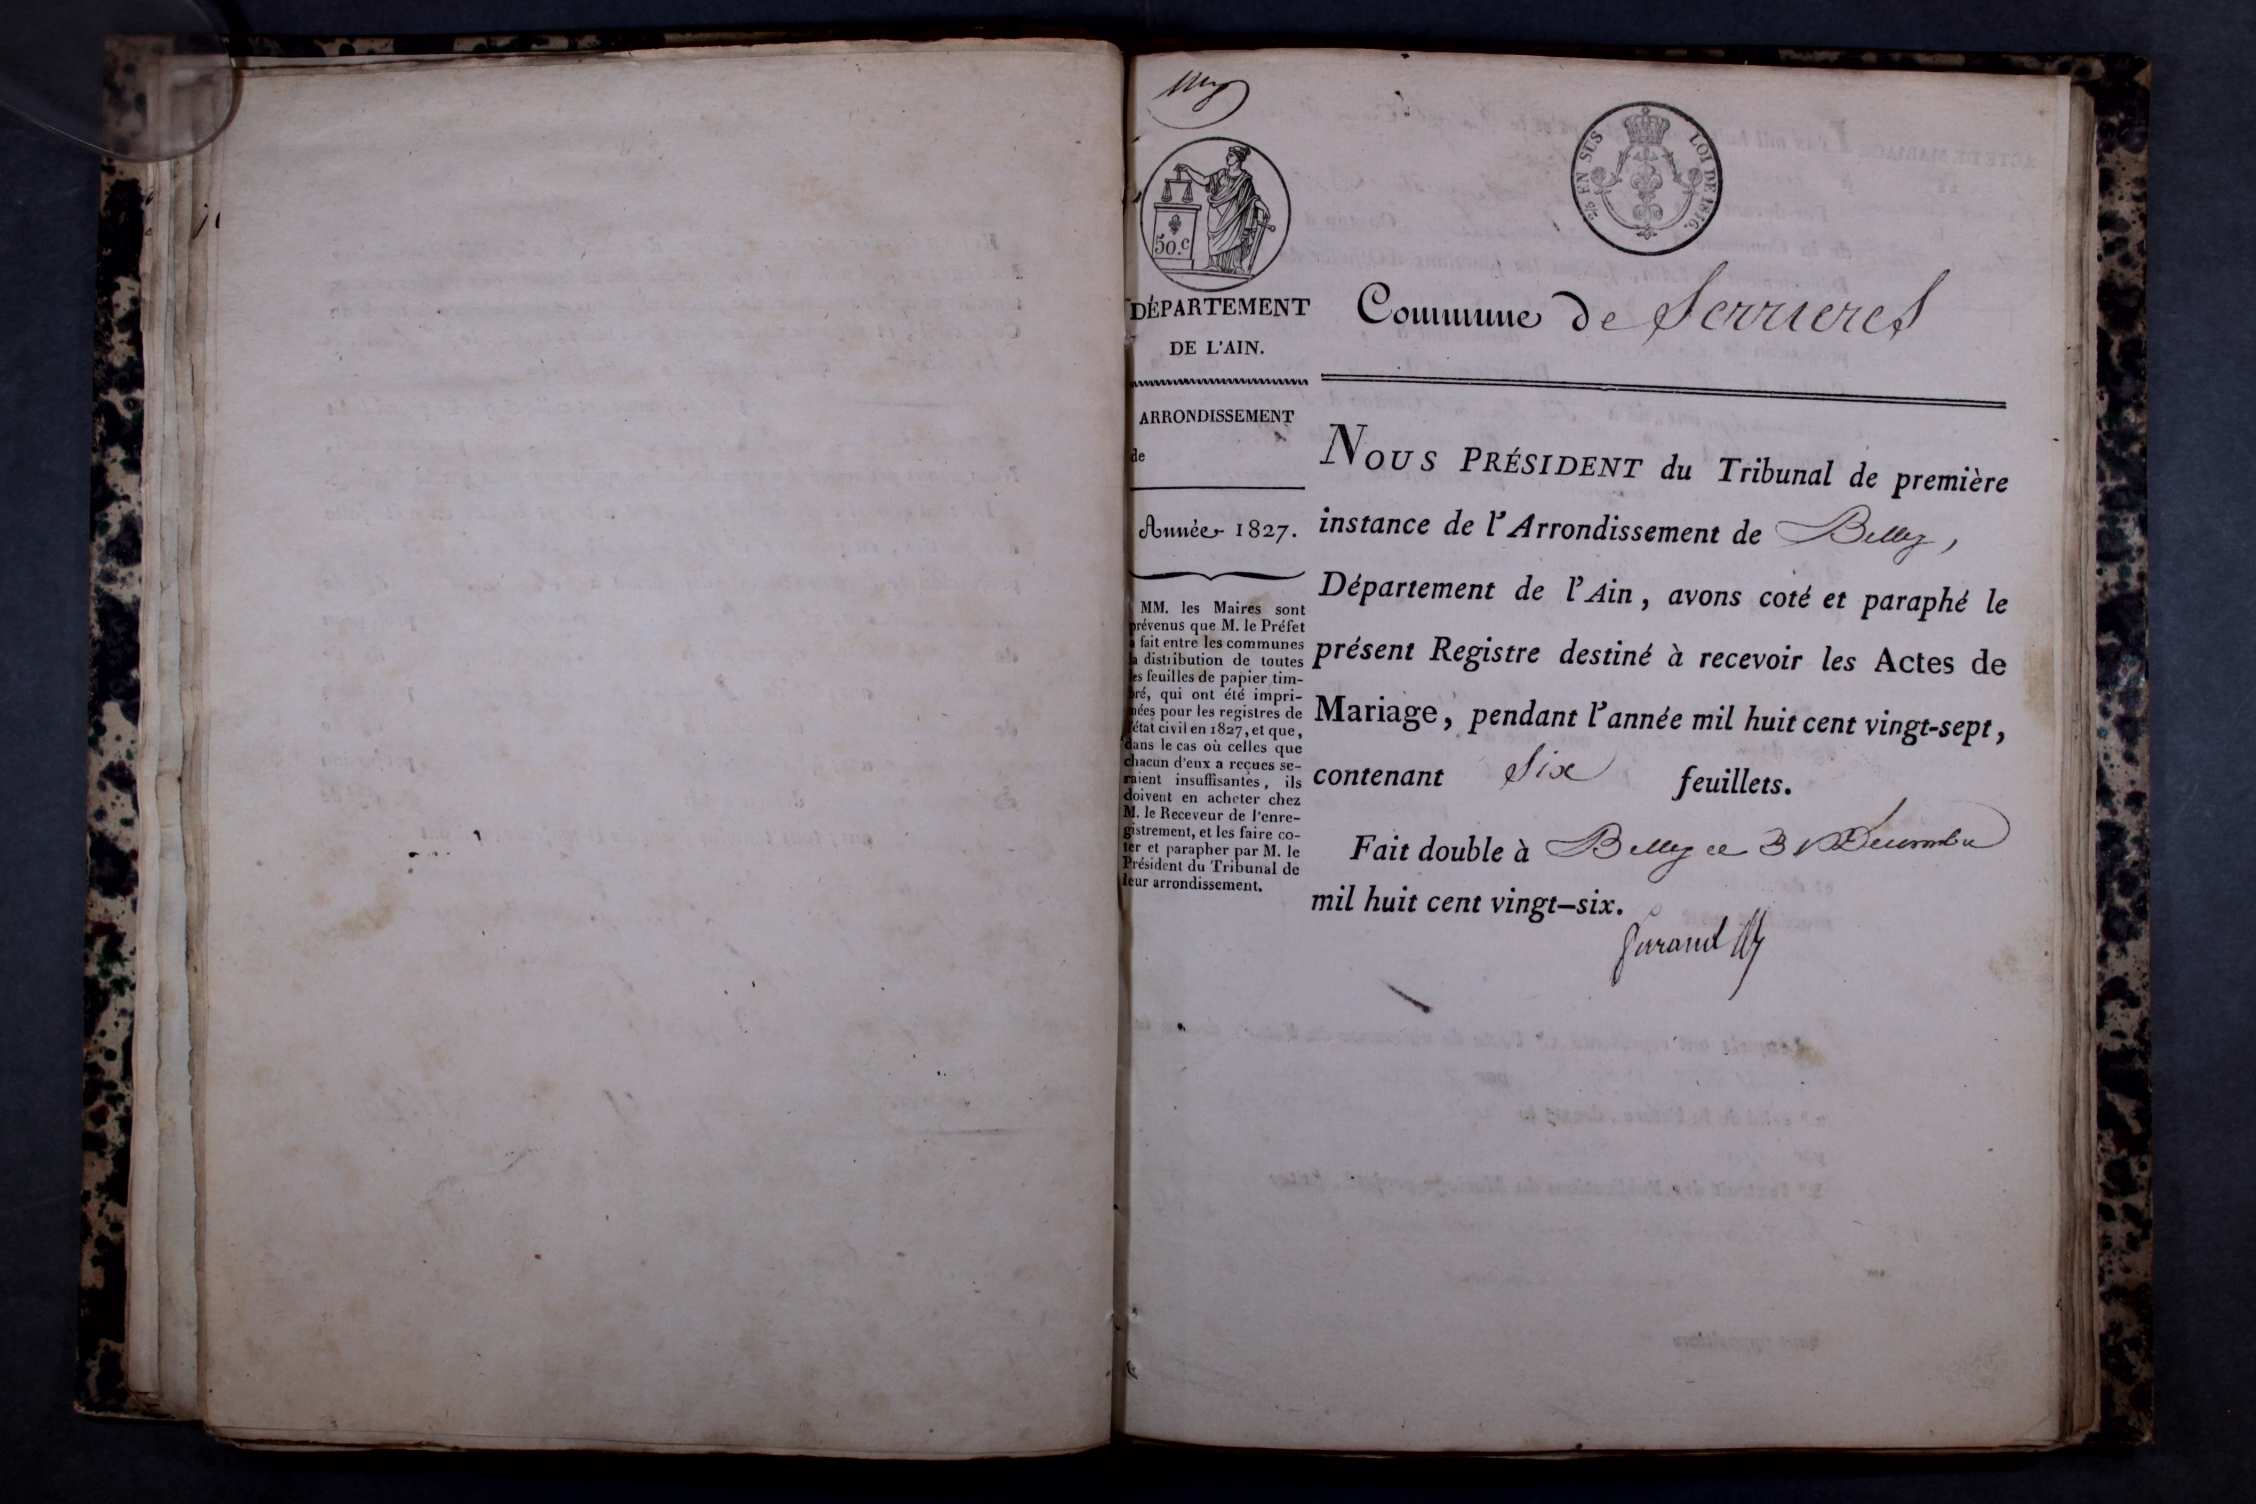 50.c
25 EN SUS LOI DE 1816.
DÉPARTEMENT
DE L'AIN.
ARRONDISSEMENT
de
Année 1827.
MM. les Maires sont
prévenus que M. le Préfet
a fait entre les communes
la distribution de toutes
les feuilles de papier tim-
bré, qui ont été impri-
mées pour les registres de
l'état civil en 1827, et que,
dans le cas où celles que
chacun d'eux a reçues se-
raient insuffisantes, ils
doivent en acheter chez
M. le Receveur de l'enre-
gistrement, et les faire co-
ter et parapher par M. le
Président du Tribunal de
leur arrondissement.
Commune de Serrieres
NOUS PRÉSIDENT du Tribunal de première
instance de l'Arrondissement de Belley,
Département de l'Ain, avons coté et paraphé le
présent Registre destiné à recevoir les Actes de
Mariage, pendant l'année mil huit cent vingt-sept,
contenant Six feuillets.
Fait double à Belley ce 31 Decembre
mil huit cent vingt-six.